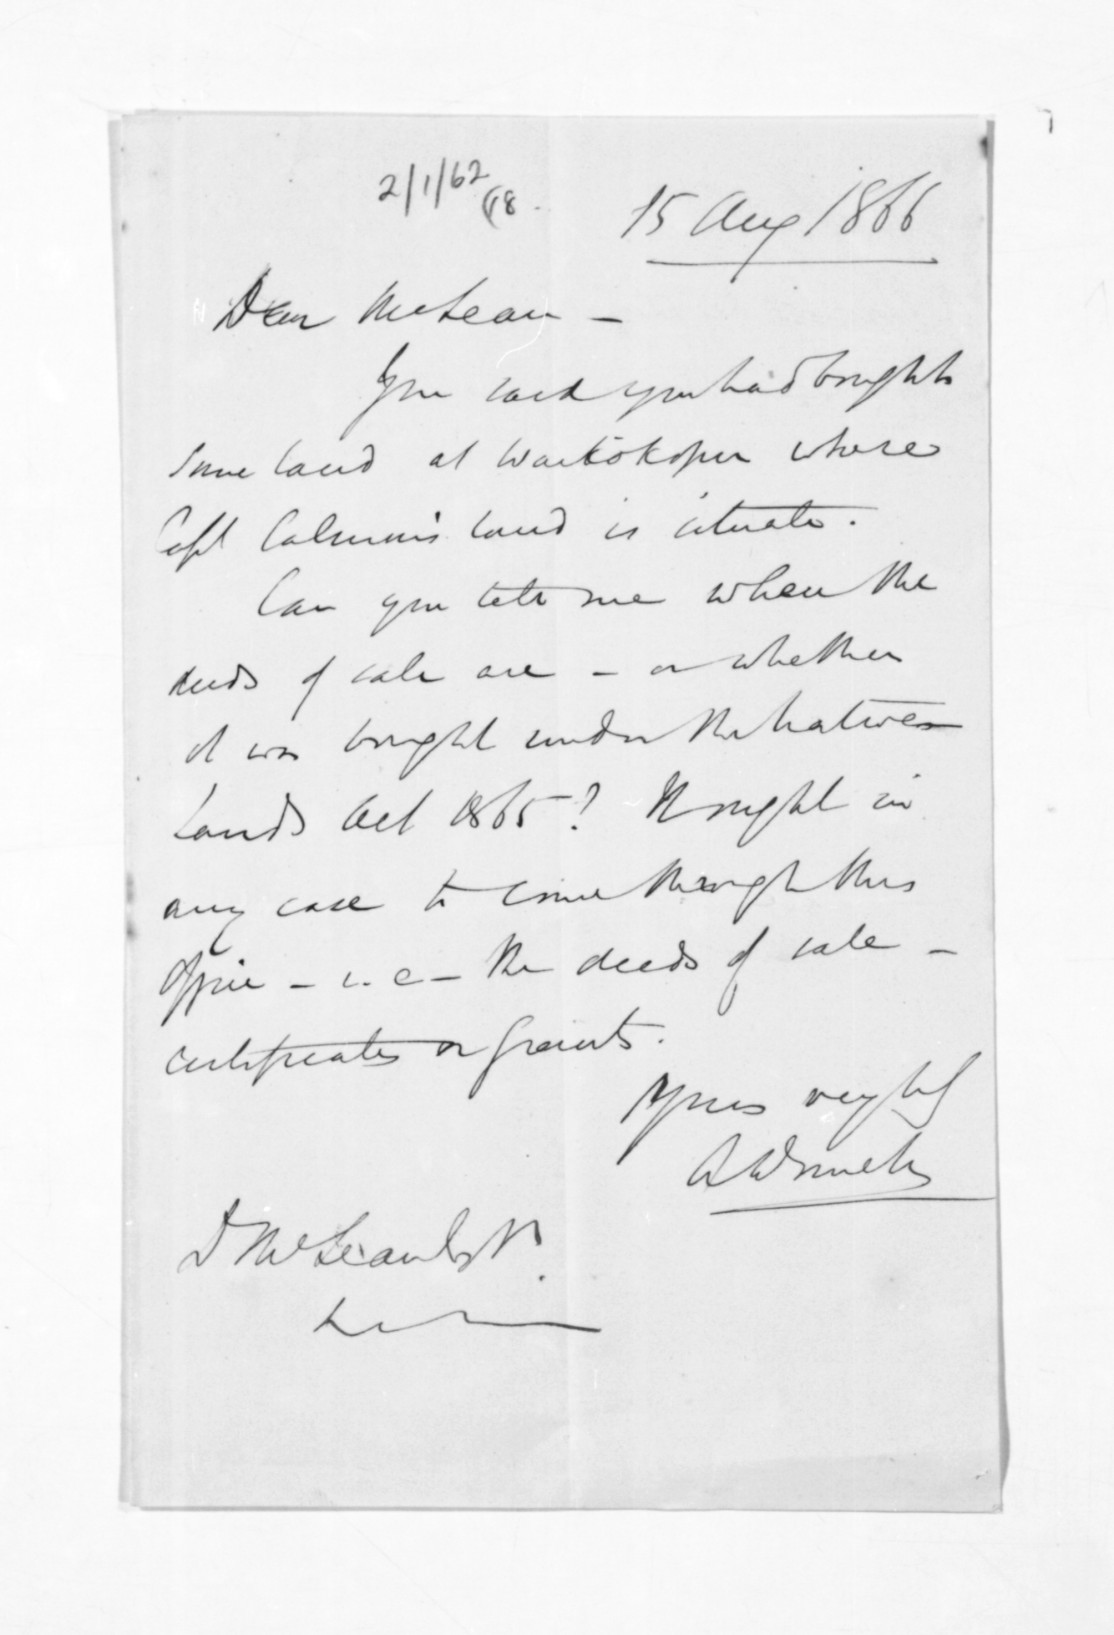 2/1/62
15 Aug 1866
Dear McLean –
You said you had bought
some land at Waikokopu where
Capt land is situate.
Can you tell me where the
deeds of sale are – or whether
it was bought under the Natives
Lands Act 1865? It ought in
any case to come through this
Office – i.e – the deeds of sale –
certificates or grants.
Yours
D McLean Esqr.